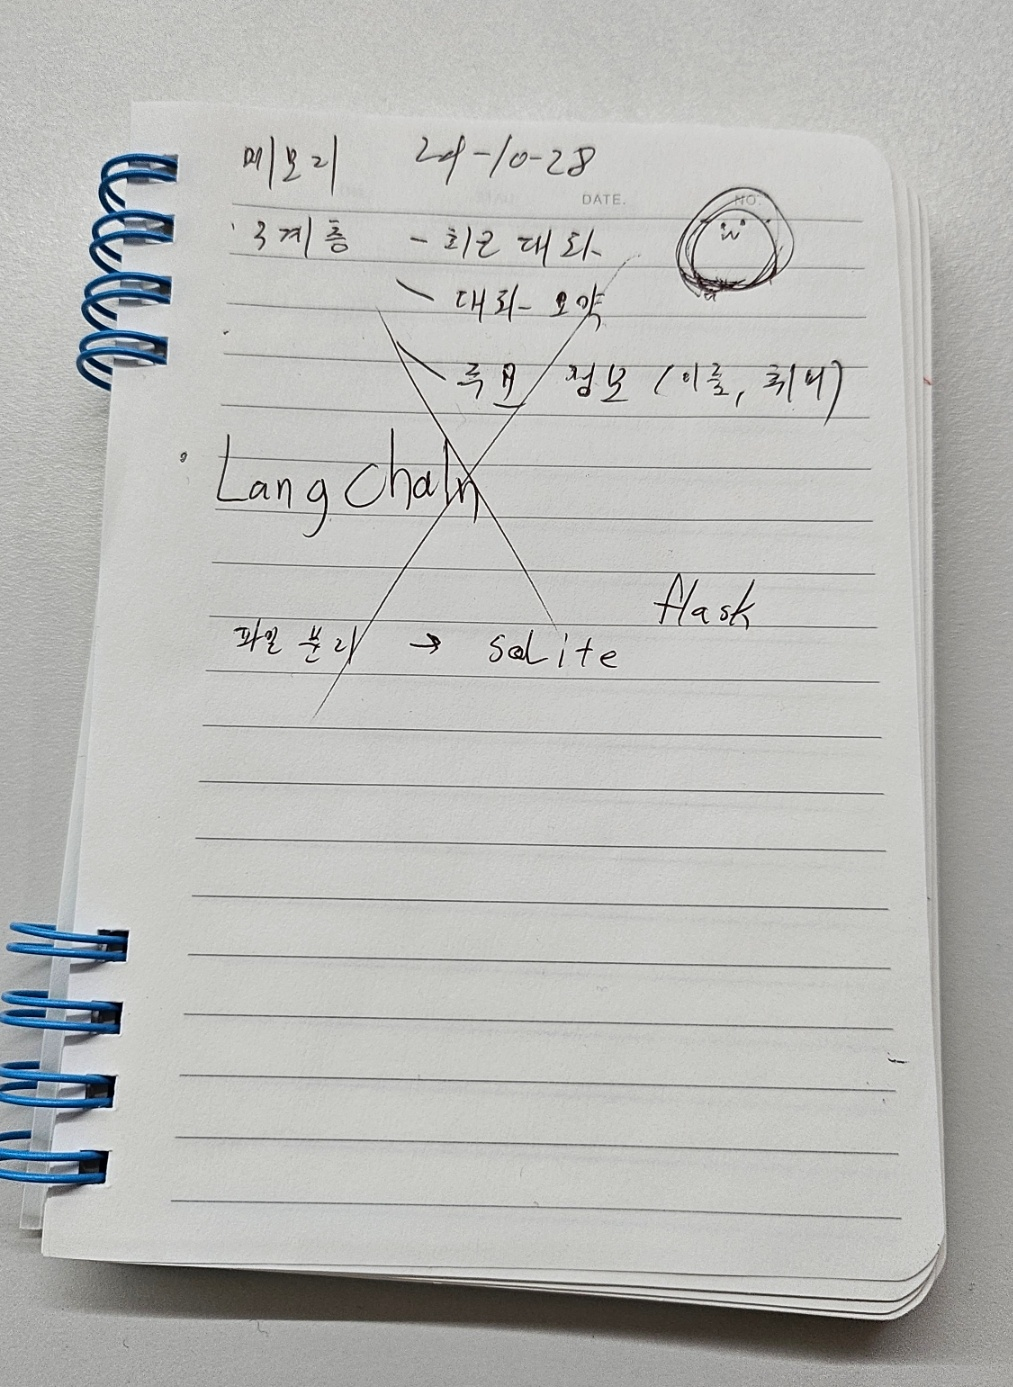 메모리 24-10-28
DATE. NO.
· 3계층 - 최근 대화
대화 요약
정보 (이름, 취미)
· LangChain
flask
파일 분리 → SQLite